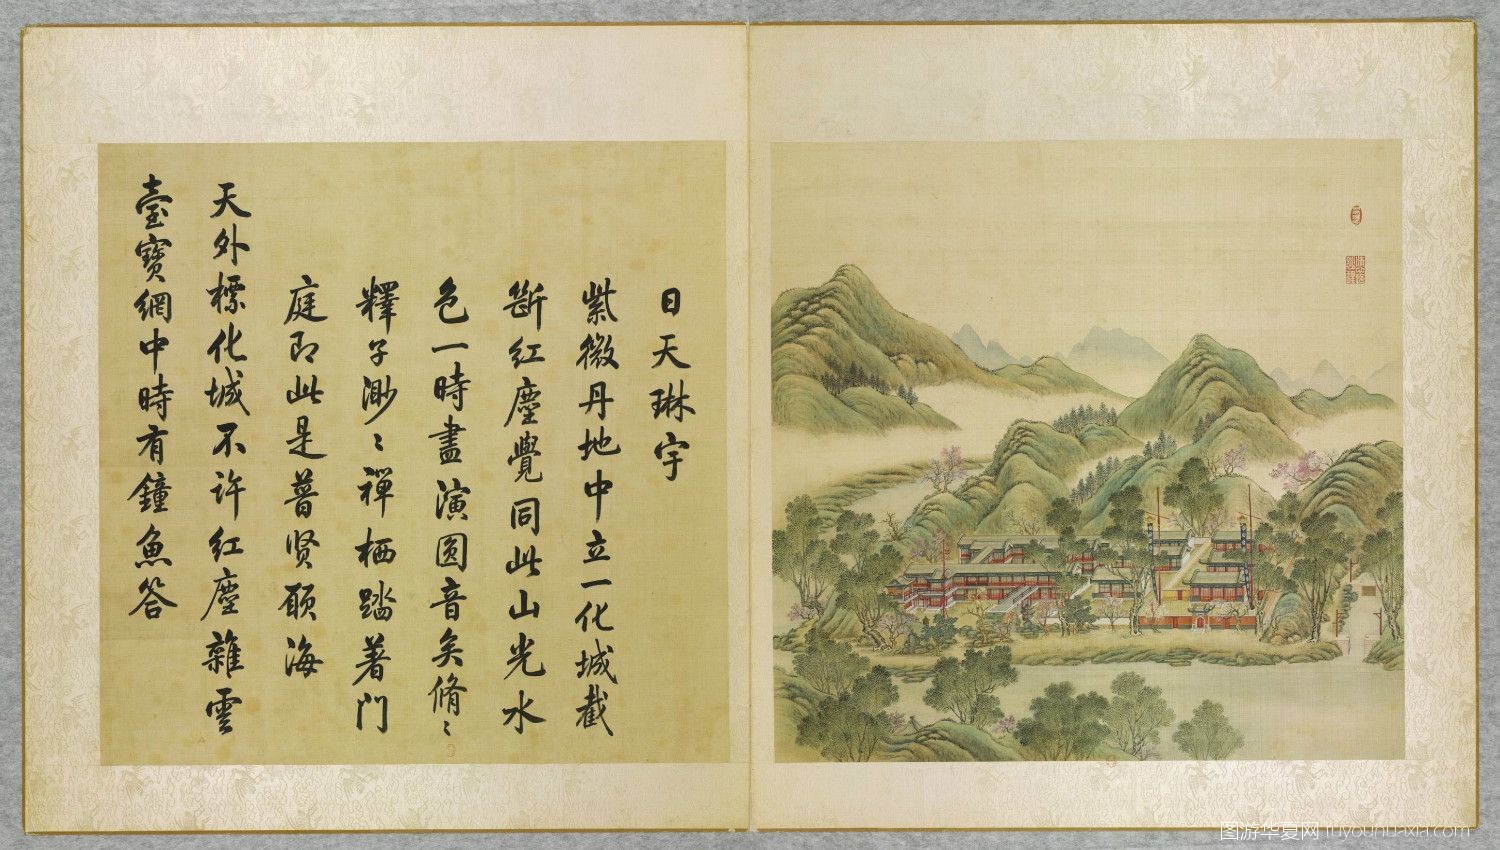 日天琳宇
紫微丹地中立一化城截
斷紅塵覺同此山光水
色一時盡演圓音矣脩〻
釋子渺〻禪栖踏著門
庭即此是普賢願海
天外標化城不許紅塵雜雲
臺寶網中時有鐘魚答
图游华夏网 tuyouhuaxia.com